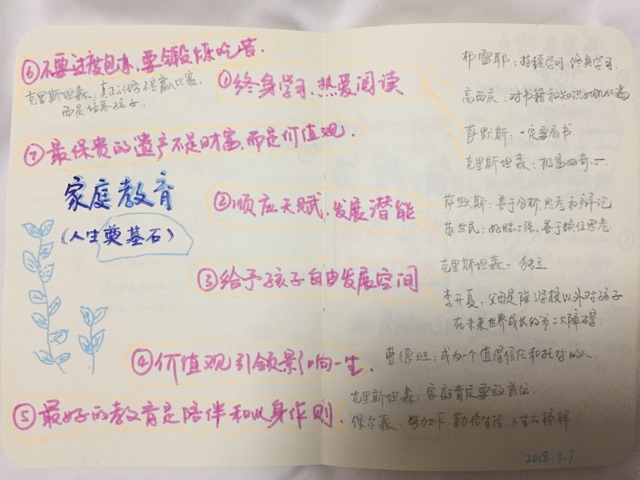 ⑥不要过度包办,要锻炼吃苦.
克里斯坦森:真正任务不是赢比赛,
而是培养孩子.
①终身学习,热爱阅读
布雷耶:持续学习 终身学习.
高西庆:对书籍和知识
萨默斯:一定要有书
克里斯坦森:极富好奇心
⑦最保贵的遗产不是财富,而是价值观.
家庭教育
(人生奠基石)
②顺应天赋,发展潜能
萨默斯:善于分析思考和辩论
苏世民:好胜心强,善于换位思考.
③给予孩子自由发展空间
克里斯坦森-独立
李开复:父母是除学校以外对孩子
在未来世界成长的第二大障碍.
④价值观引领影响一生.
曹德旺:成为一个值得信任和托付的人.
⑤最好的教育是陪伴和以身作则.
克里斯坦森:家庭肯定要放首位
保尔森:努力工作、勤俭生活、人生的榜样.
2018.3.7